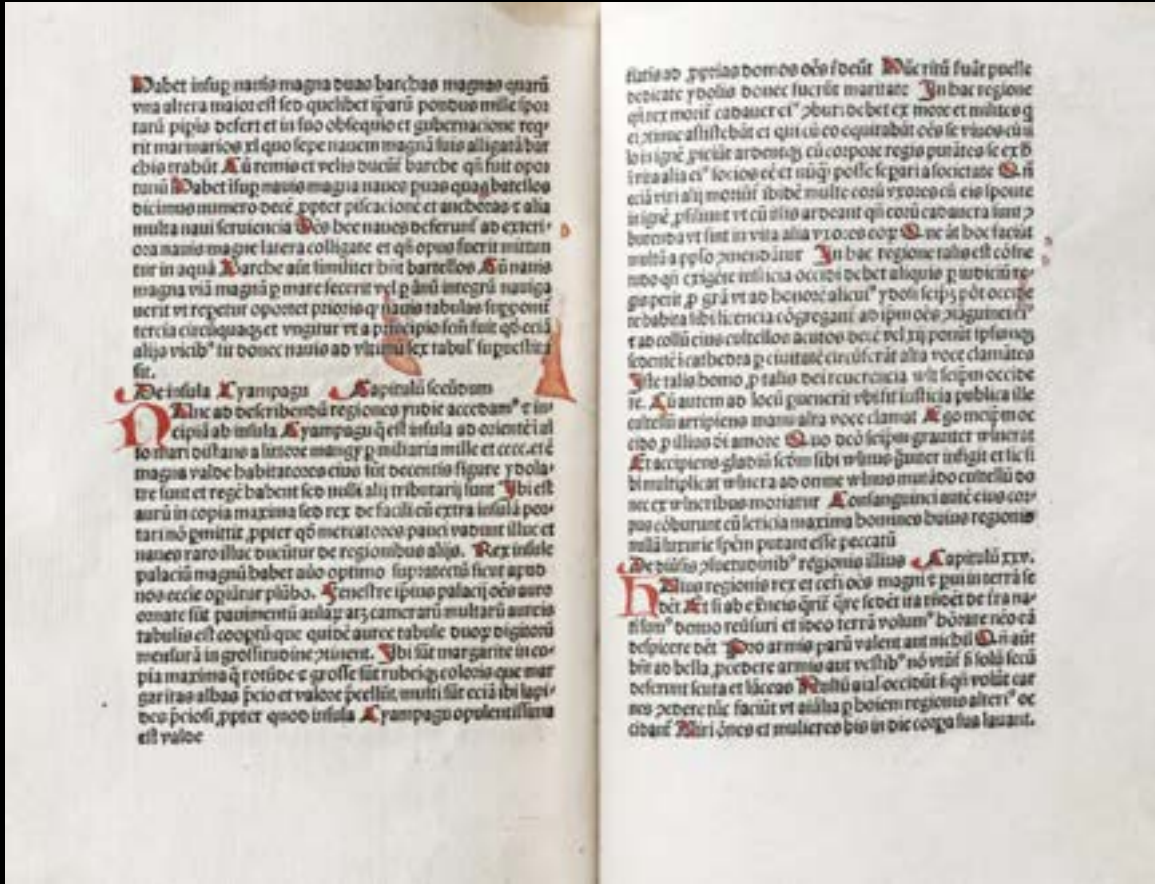 Habet insup nauis magna duas barchas magnas quarū
vna altera maior est sed quelibet ipārū pondus mille spor
tarū pipis defert et in suo obsequio et gubernacione req̄
rit marinarios xl quo sepe nauem magnā suis alligatā bar
chis trahūt Cū remis et velis ducūt barche qn̄ fuit opor
tunū Habet isup nauis magna naues puas quas batellos
dicimus numero decē ꝓpter piscacionē et anchoras ⁊ alia
multa naui seruiencia Oēs hee naues deferunt ad exteri-
ora nauis magne latera colligate et qn̄ opus fuerit mittun
tur in aquā Barche aūt similiter hn̄t bartellos Cū nauis
magna viā magnā p mare fecerit vel p ānū integrū nauiga
uerit vt repetur oportet prioris nauis tabulas
tercia circūquaq3 et vngitur vt a principio fuit qd eciā
alijs vicib9 fit donec nauis ad vltimū sex tabul
sit.
De insula Cyampagu Capitulū secūdum
Nvnc ad describendū regiones yndie accedam9 ⁊ in-
cipiā ab insula Cyampagu q̄ est insula ad orientē i al
to mari distans a littore mangy p miliaria mille et cccc. et ē
magna valde habitatores eius sūt decentis figure ydola-
tre sunt et regē habent sed nulli alij tributarij sunt Ibi est
aurū in copia maxima sed rex de facili eū extra insulā por-
tari nō pmittit ꝓpter qd mercatores pauci vadunt illuc et
naues raro illuc ducūtur de regionibus alijs. Rex insule
palaciū magnū habet auro optimo supratectū sicut apud
nos ecclie opiūtur plūbo. Fenestre ipius palacij oēs auro
ornate sūt pauimentū aulaꝝ at3 camerarū multarū aureis
tabulis est cooptū que quidē auree tabule duoꝝ digitorū
mensurā in grossitudine ꝯtinent. Ibi sūt margarite in co-
pia maxima q̄ rotūde ⁊ grosse sūt rubeiq3 coloris que mar
garitas albas p̄cio et valore p̄cellūt, multi sūt eciā ibi lapi-
des p̄ciosi ꝓpter quod insula Cyampagu opulentissima
est valde
ad ꝓprias domos oēs Nūc fuāt puelle
dedicate ydolis donec fuerūt maritate In hac regione
qn̄ rex morit cadauer ei9 ꝯburi debet ex more et milites q
ei assistebāt et qui cū eo equitabāt oēs se viuos cū il
lo i ignē ꝓiciūt ardentiq3 cū corpore regis putātes se ex h
ī vita alia ei9 socios eē et nūq̄ posse separi a societate Qn̄
eciā viri alij moriūt ibidē multe eorū vxores cū eis sponte
in ignē ꝓsiliunt vt cū illis ardeant qn̄ eorū cadauera sunt ꝯ
burenda vt sint in vita alia vxores eoꝝ Que āt hoc faciūt
multū a pplo ꝯmendātur In hac regione talis est cōsue
tudo qn̄ exigēte iusticia occidi debet aliquis p iudiciū re-
gis petit ꝓ grā vt ad honorē alicui9 ydoli seip̄3 pōt occide
re habita sibi licencia cōgregant ad ipm oēs ꝯsāguinei ei9
⁊ ad collū eius cultellos acutos decē vel xij ponūt ipsumq3
sedentē i cathedra p ciuitatē circūferāt alta voce clamātes
Iste talis homo ꝓ talis dei reuerencia wlt seipm occide
re. Cū autem ad locū puenerit vbi fit iusticia publica ille
cultellū arripiens manu alta voce clamat Ego meip̄m oc
cido ꝓ illius di amore Quo dcō seipm grauiter wlnerat
Et accipiens gladiū scdm sibi wlnus infigit et sic si
bi multiplicat wlnera ad omne wlnus mutādo cultellū do
nec ex wlneribus moriatur Consanguinei autē eius cor-
pus cōburunt cū leticia maxima homines huius regionis
nullā luxurie spēm putant esse peccatū
De diūsis ꝯsuetudinib9 regionis illius Capitulū xxv.
Hvius regionis rex et ceti oēs magni ⁊ pui in terrā se
dēt Et si ab e q̄re sedēt ita rn̄dēt de tra na-
ti sum9 demo reūsuri et ideo terrā volum9 hōrare nec eā
despicere dēt Pro armis parū valent aut nichil Qn̄ aūt
hn̄t ad bella ꝓcedere armis aut vestib9 nō vtūt s3 solū secū
deferunt scuta et lāceas Nullū aīal occidūt s3 qn̄ volūt car
nes ꝯedere tūc faciūt vt aiālia p hoiem regionis alteri9 oc
cidant Viri ōnes et mulieres bis in die corpa sua lauant.